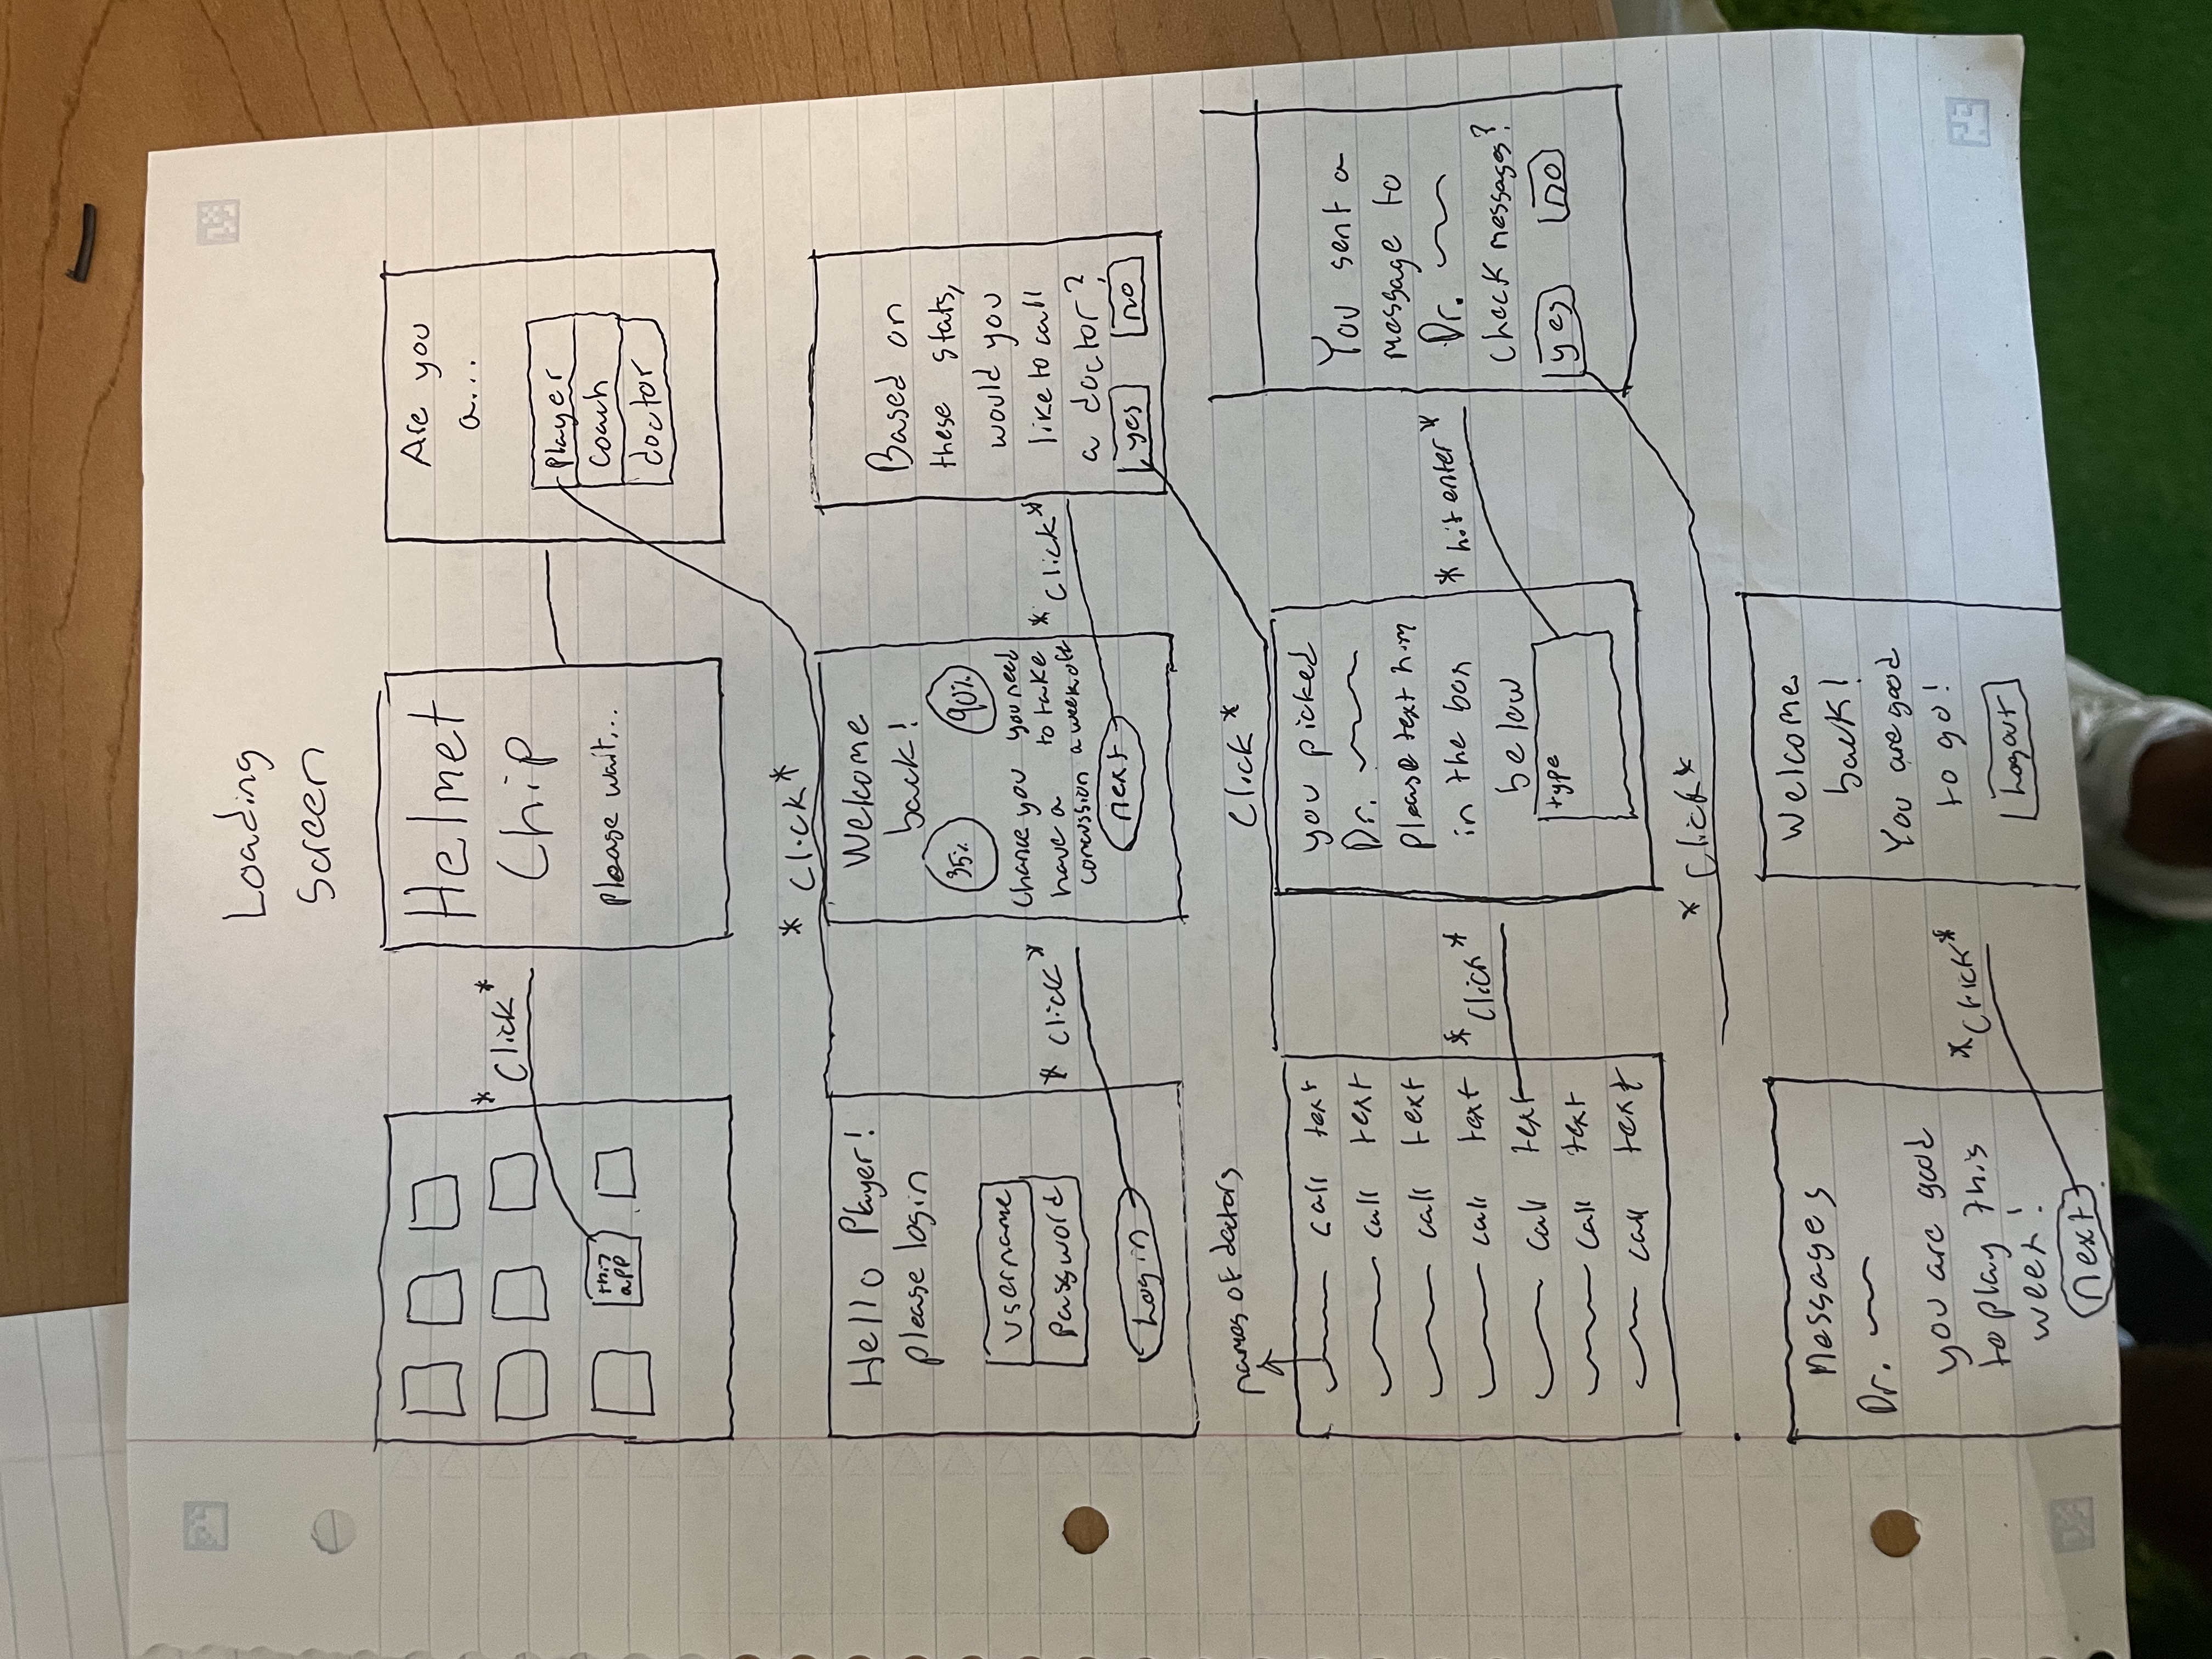 Loading
Screen
this
app
*Click*
Helmet
Chip
please wait...
Are you
a...
Player
coach
doctor
*Click*
Hello Player!
please login
username
password
Login
*Click*
Welcome
back!
35%
90%
Chance you
have a
concussion
you need
to take
a week off
next
*Click*
Based on
these stats,
would you
like to call
a doctor?
yes
no
Click*
names of doctors
call text
call text
call text
call text
call text
call text
call text
*Click*
you picked
Dr.
please text him
in the box
below
type
*hit enter*
You sent a
message to
Dr.
Check messages?
yes
no
*Click*
Messages
Dr.
you are good
to play this
week!
next
*Click*
Welcome
back!
You are good
to go!
Logout